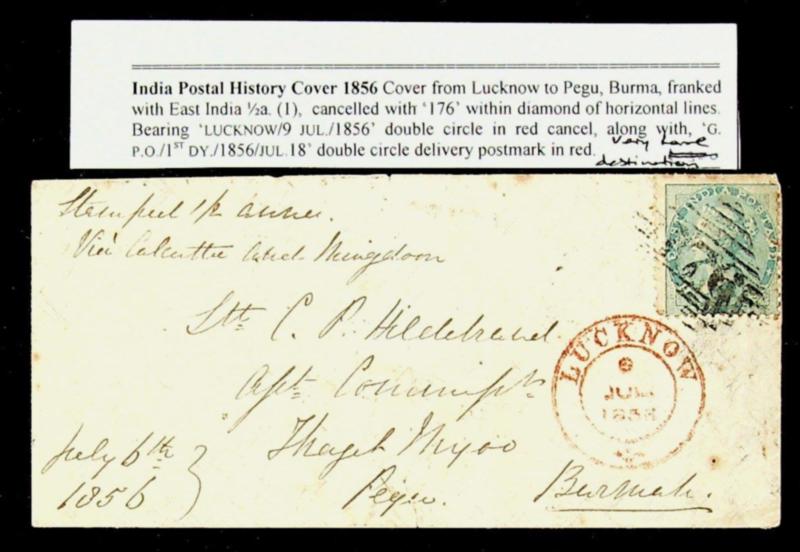 India Postal History Cover 1856 Cover from Lucknow to Pegu, Burma, franked
with East India ½a. (1), cancelled with '176' within diamond of horizontal lines.
Bearing 'LUCKNOW/9 JUL./1856' double circle in red cancel, along with, 'G.
P.O./1ST DY./1856/JUL.18' double circle delivery postmark in red. Very rare
destination
Stamped 1/2 anna.
Viâ Calcutta and
Ltt C. P. Hildebrand
Asst Commissr
Thayet Myoo
Pegu. Burmah.
July 6th
1856
LUCKNOW
JUL.
1856
EAST INDIA